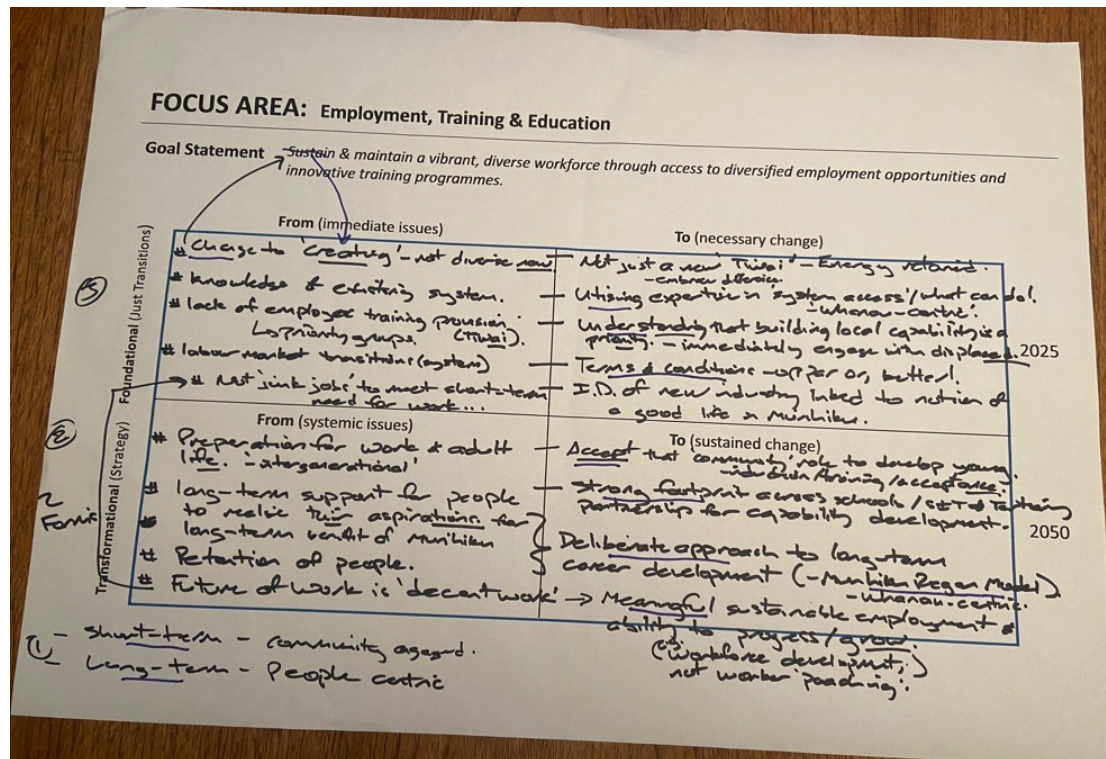 FOCUS AREA: Employment, Training & Education
Goal Statement Sustain & maintain a vibrant, diverse workforce through access to diversified employment opportunities and
innovative training programmes.
From (immediate issues)
# Change to 'creating' - not diverse now.
# knowledge of existing system.
# lack of employee training provision
↳ priority groups. (Tiwai).
# labour market transitions (system)
# Not 'junk jobs' to meet short-term
need for work...
To (necessary change)
- Not just a new 'Tiwai' - Energy retained.
- embrace difference.
- Utilising expertise in 'system access'/what can do!
- whanau-centric.
- understanding that building local capability is a
priority. - immediately engage with displaced.
- Terms & conditions - up par or, better!
- I.D. of new industry linked to notion of
a good life in Murihiku.
2025
Foundational (Just Transitions)
From (systemic issues)
# Preparation for work & adult
life. - intergenerational'
# long-term support for people
to realise their aspirations for
long-term benefit of Murihiku
# Retention of people.
# Future of work is 'decent work' →
To (sustained change)
- Accept that community role to develop young.
- Strong footprint across schools / Tertiary
partnership for capability development.
Deliberate approach to long-term
career development (- Murihiku Regen Model)
- whanau-centric.
Meaningful sustainable employment &
ability to progress/grow.
(e.g. Workforce development,
not worker 'poaching'.)
2050
Transformational (Strategy)
①
- short-term - community
- Long-term - People centric
②